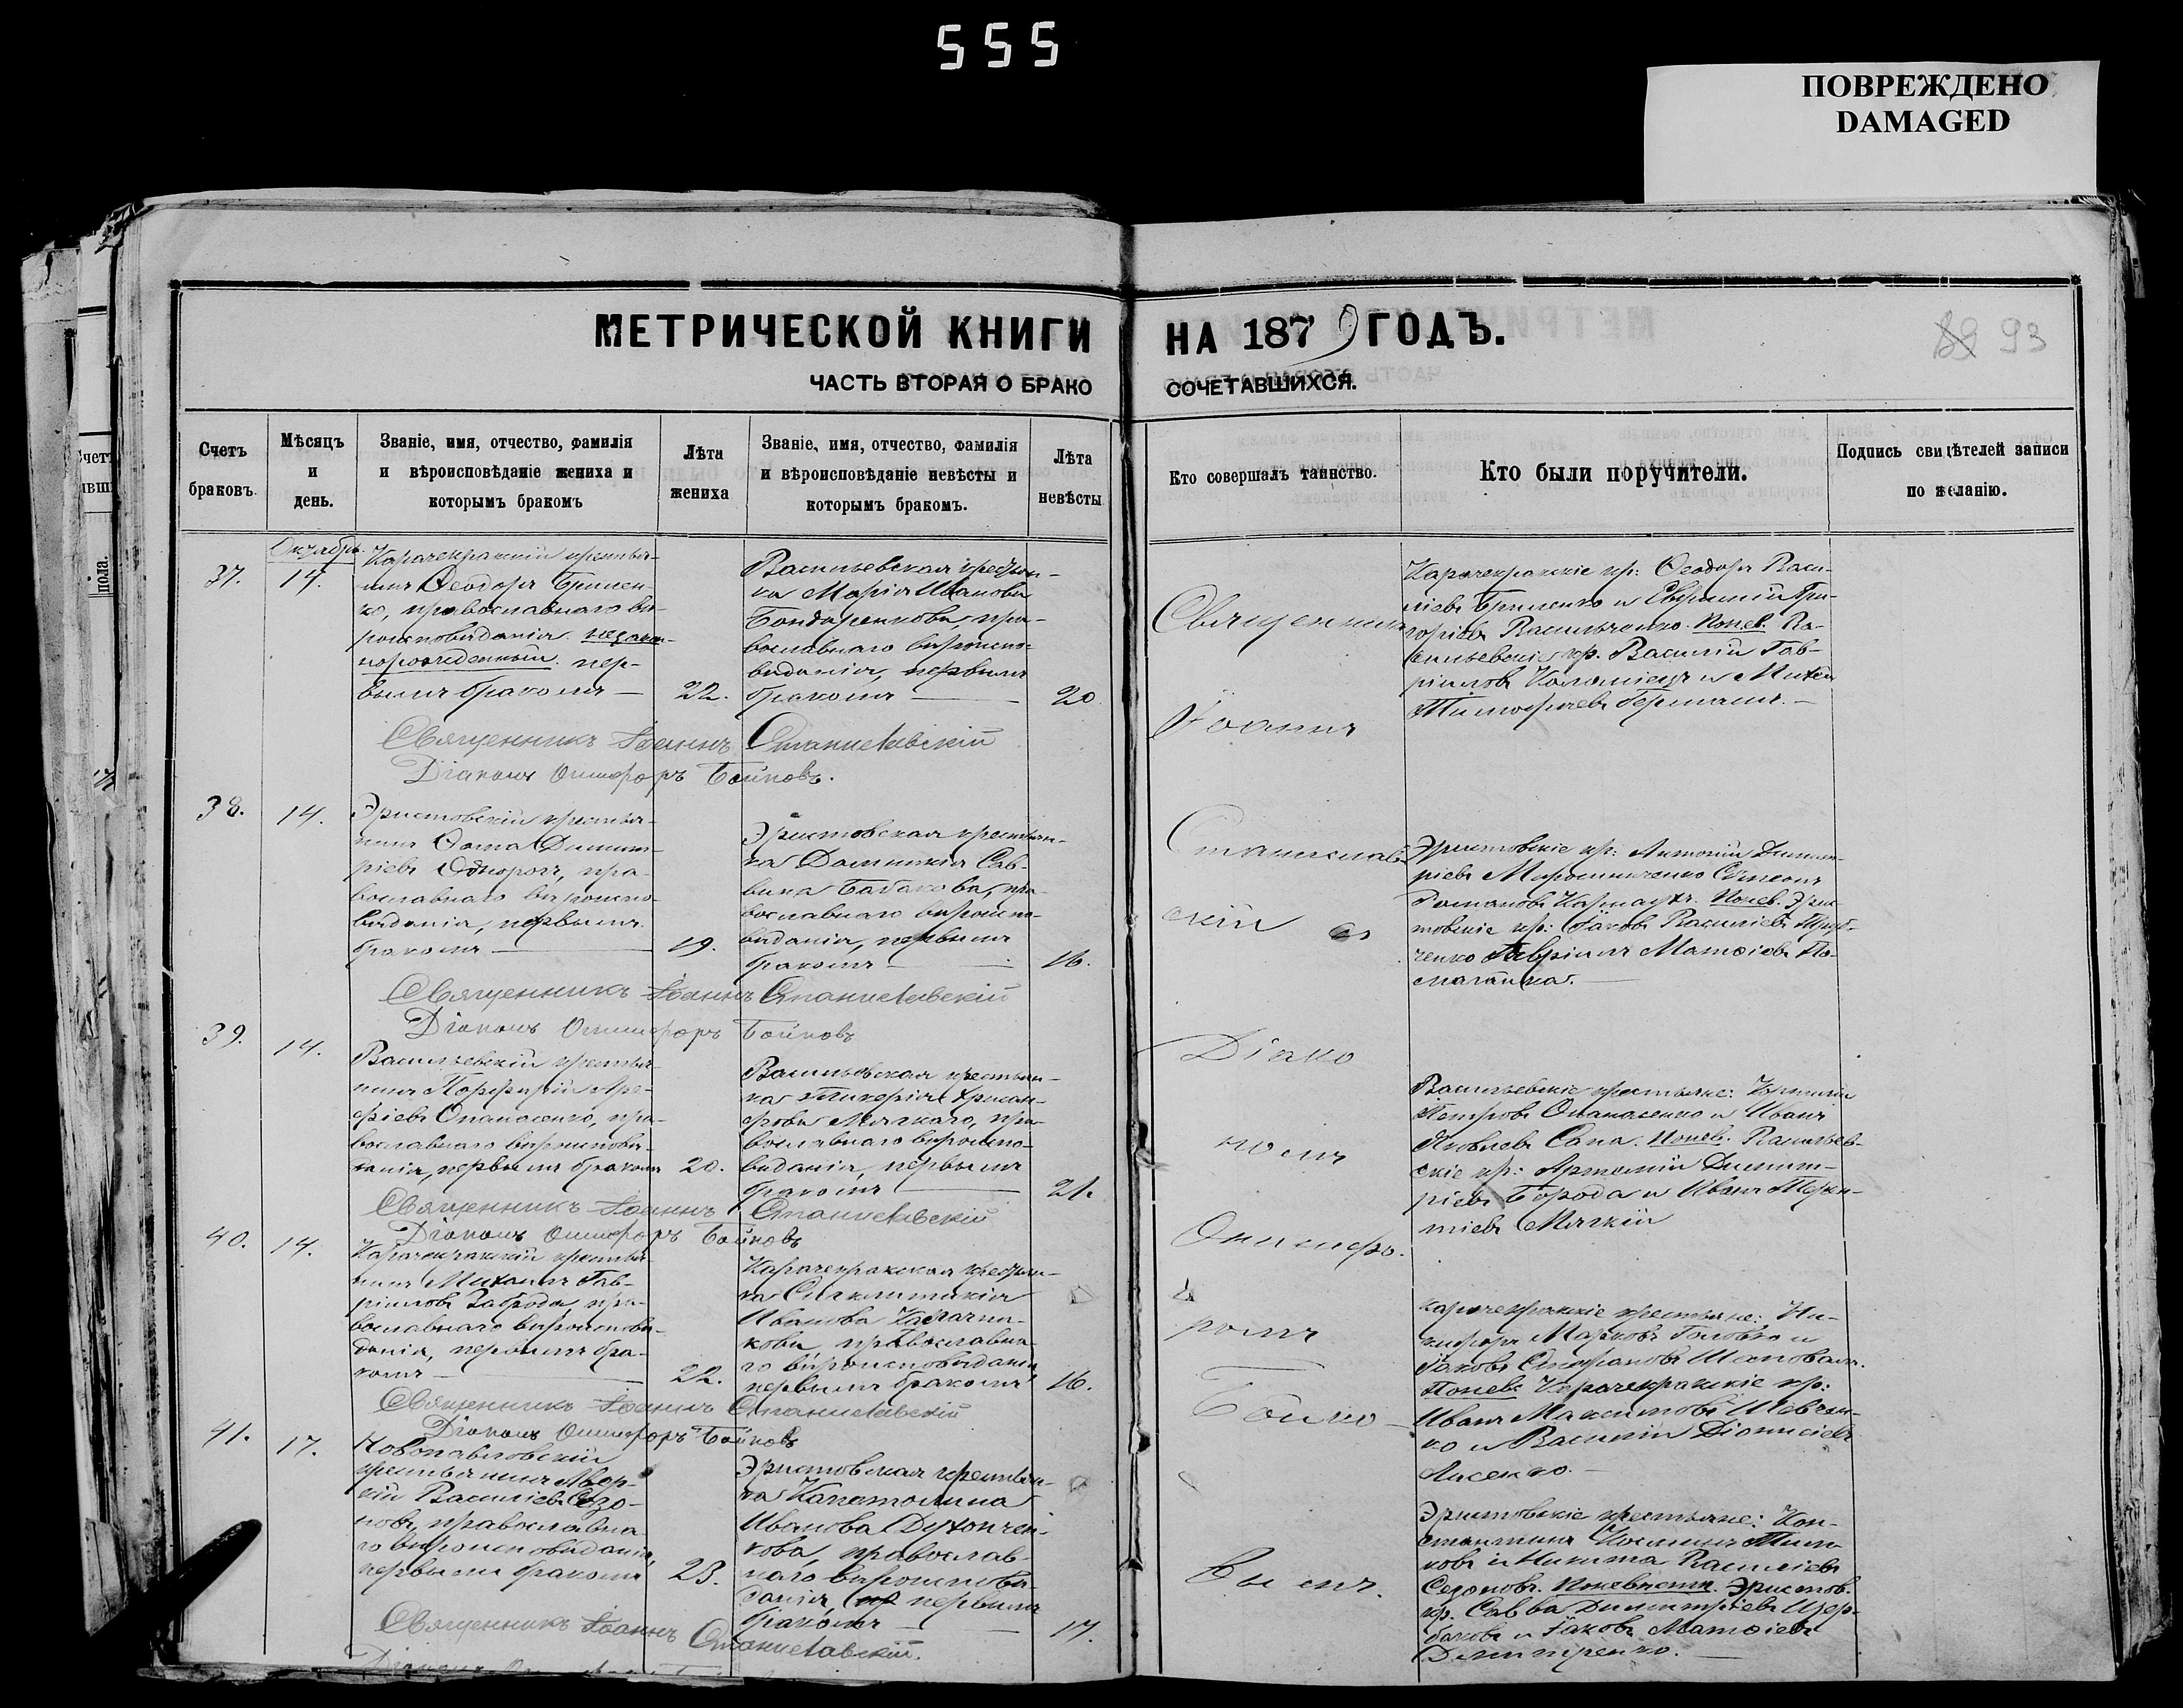 555
ПОВРЕЖДЕНО
DAMAGED
МЕТРИЧЕСКОЙ КНИГИ НА 1879 ГОДЪ.
89 93
ЧАСТЬ ВТОРАЯ О БРАКОСОЧЕТАВШИХСЯ.
Счетъ
браковъ.
Мѣсяцъ
и
день.
Званіе, имя, отчество, фамилія
и вѣроисповѣданіе жениха и
которымъ бракомъ
Лѣта
жениха
Званіе, имя, отчество, фамилія
и вѣроисповѣданіе невѣсты и
которымъ бракомъ.
Лѣта
невѣсты
Кто совершалъ таинство.
Кто были поручители.
Подпись свидѣтелей записи
по желанію.
37.
Октябрь
14.
Карачекракскій крестья-
нинъ Ѳеодоръ Брилен-
ко, православнаго вѣ-
роисповѣданія. незакон-
норожденный. пер-
вымъ бракомъ —
22.
Васильевская крестьян-
ка Марія Иванова
Бондаренкова, пра-
вославнаго вѣроиспо-
вѣданія, первымъ
бракомъ —
20
Карачекракскіе кр: Ѳеодоръ Васи-
ліевъ Бриленко и Евфимій Гри-
горіевъ Васильченко. Понев. Ва-
сильевскіе кр. Василій Гав-
ріиловъ Коломіецъ и Михей
Тимоѳеевъ Германъ. —
Священникъ Іоаннъ Станиславскій
Діаконъ Онисифоръ Бойковъ.
38.
14.
Эристовскій крестья-
нинъ Ѳома Димит-
ріевъ Однорогъ, пра-
вославнаго вѣроиспо-
вѣданія, первымъ
бракомъ —
19.
Эристовская крестьян-
ка Домникія Сав-
вина Бабакова, пра-
вославнаго вѣроиспо-
вѣданія, первымъ
бракомъ —
16.
Эристовскіе кр: Антоній Димит-
ріевъ Мирошниченко Симеонъ
Романовъ Понев. Эрис-
товскіе кр: Іаковъ Василіевъ
ченко Гавріилъ Матѳіевъ По-
магайка. —
Священникъ Іоаннъ Станиславскій
Діаконъ Онисифоръ Бойковъ
39.
14.
Васильевскій крестья-
нинъ Порфирій Аре-
фіевъ Опанасенко, пра-
вославнаго вѣроисповѣ-
данія, первымъ бракомъ
20.
Васильевская крестьян-
ка Гликерія Хрисан-
фова Мягкаго, пра-
вославнаго вѣроиспо-
вѣданія, первымъ
бракомъ —
21.
Васильевскіе крестьяне:
Петровъ Опанасенко и Иванъ
Яковлевъ Сапа. Понев. Васильев-
скіе кр: Артемій Димит-
ріевъ Борода и Иванъ Терен-
тіевъ Мягкій
Священникъ Іоаннъ Станиславскій
Діаконъ Онисифоръ Бойковъ
40.
14.
Карачекракскій крестья-
нинъ Михаилъ Гав-
ріиловъ Заброда, пра-
вославнаго вѣроисповѣ-
данія, первымъ бра-
комъ —
22.
Карачекракская крестьян-
ка Сигклитикія
Иванова
кова, православна-
го вѣроисповѣданія
первымъ бракомъ
16.
Карачекракскіе крестьяне: Ни-
кифоръ Марковъ Головко и
Іаковъ Стефановъ Шаповалъ.
Понев. Карачекракскіе кр:
Иванъ Максимовъ Шевчен-
ко и Василій Діонисіевъ
Лисенко. —
Священникъ Іоаннъ Станиславскій
Діаконъ Онисифоръ Бойковъ
41.
17.
Новопавловскій
крестьянинъ Мар-
кій Василіевъ Сезо-
новъ, православна-
го вѣроисповѣданія,
первымъ бракомъ
23.
Эристовская крестьян-
ка Капитолина
Иванова Духончен-
кова, православ-
наго вѣроисповѣ-
данія, первымъ
бракомъ —
17.
Эристовскіе крестьяне: Кон-
стантинъ
ковъ и Никита Василіевъ
Сезоновъ. Поневѣстѣ. Эристов.
кр. Савва Димитріевъ Щер-
баковъ и Іаковъ Матѳіевъ
Дмитренко. —
Священникъ Іоаннъ Станиславскій.
Священникъ
Іоаннъ
Станиславскій
съ
Діакономъ
Онисифоромъ
Бойковымъ.